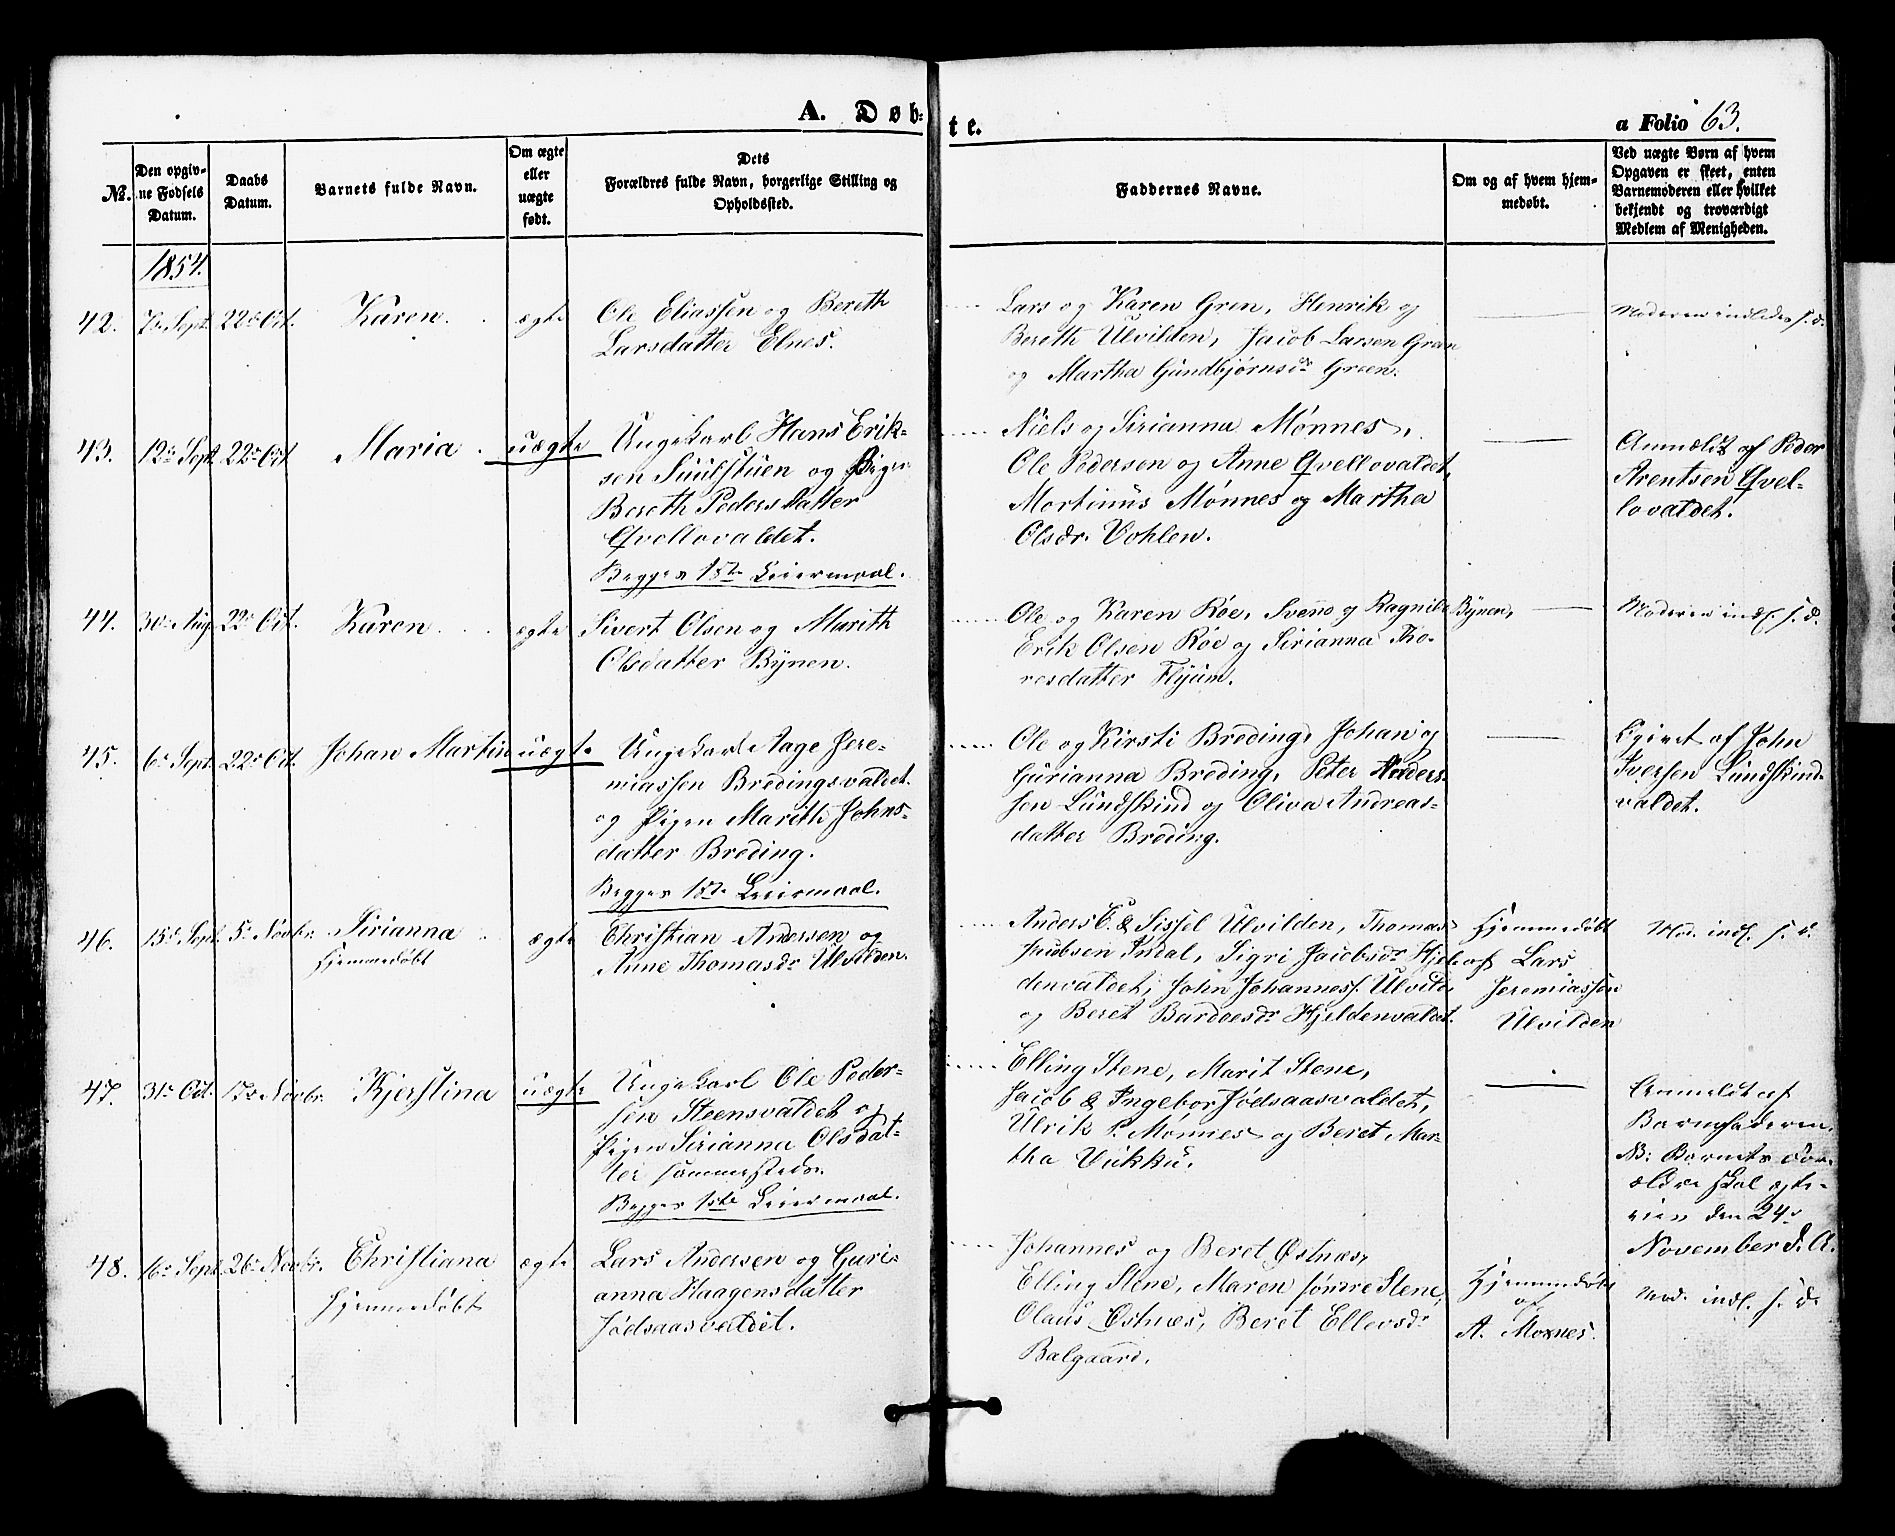 A. Døb-
te.
a Folio 63.
№.
Den opgiv-
ne Fødsels
Datum.
Daabs
Datum.
Barnets fulde Navn.
Om ægte
eller
uægte
født.
Dets
Forældres fulde Navn, borgerlige Stilling og
Opholdssted.
Faddernes Navne.
Om og af hvem hjem-
medøbt.
Ved uægte Børn af hvem
Opgaven er skeet, enten
Barnemoderen eller hvilket
bekjendt og troværdigt
Medlem af Menigheden.
1854.
42. 7de Sept. 22de Oct. Karen. ægte
Ole Eliassen og Bereth
Larsdatter Elnes.
Lars og Karen Gren, Henrik og
Bereth Ulvilden, Jacob Larsen Green
og Martha Gundbjørnsdr Green.
Moderen indledes s. d.
43. 12te Sept. 22de Oct. Maria. uægte
Ungekarl Hans Erik-
sen Suulstuen og Pigen
Bereth Pedersdatter
Qvellovaldet.
Begges 1ste Leiermaal.
Niels og Sirianna Mønnes,
Ole Pedersen og Anne Qvellovaldet,
Martinus Mønnes og Martha
Olsdr. Vohlen.
Anmeldt af Peder
Arentsen Qvel-
lovaldet.
44. 30te Aug. 22de Oct. Karen. ægte
Sivert Olsen og Marith
Olsdatter Bÿnen.
Ole og Karen Röe, Svend og Ragnild Bÿnen,
Erik Olsen Röe og Sirianna Tho-
resdatter Flyum.
Moderen indl. s. d.
45. 6te Sept. 22de Oct. Johan Martin uægte
Ungekarl Aage Jere-
miassen Bredingsvaldet
og Pigen Marith Johns-
datter Breding.
Begges 1ste Leiermaal.
Ole og Kirsti Breding, Johan og
Gurianna Breding, Peter Anders-
sen Lundskind og Oliva Andreas-
datter Breding.
Opgivet af John
Iversen Lundskind-
valdet.
46. 15de Sept. 5te Novbr. Sirianna ægte
hjemmedøbt
Christian Andersen og
Anne Thomasdr Ulvilden.
Anders E. & Sissel Ulvilden, Thomas
Jacobsen Indal, Sigri Jacobsdr Hjel-
denvaldet, John Johanness. Ulvild.
og Beret Bardoesdr Hjeldenvaldet.
Hjemmedøbt
af Lars
Jeremiassen
Ulvilden
Mod. indl. s. d.
47. 31te Oct. 17de Novbr. Kjerstina uægte
Ungekarl Ole Peder-
sen Steensvaldet og
Pigen Sirianna Olsdat-
ter
Begges 1ste Leiermaal.
Elling Stene, Marit Stene,
Jacob & Ingebor Jødsaasvaldet,
Ulrik P. Mønnes og Beret Mar-
tha Vukku.
Anmeldt af
Barnefaderen.
NB: Barnets For-
ældre skal ægte-
vies den 24de
November d. A.
48. 16de Sept. 26de Novbr. Christiana ægte
hjemmedøbt
Lars Andersen og Guri-
anna Haagensdatter
Jødsaasvaldet.
Johannes og Beret Østnæs,
Elling Stene, Maren søndre Stene,
Olaus Østnæs, Beret Ellevsdr
Balgaard.
Hjemmedøbt
af
A. Moxnes.
Mod. indl. s. d.